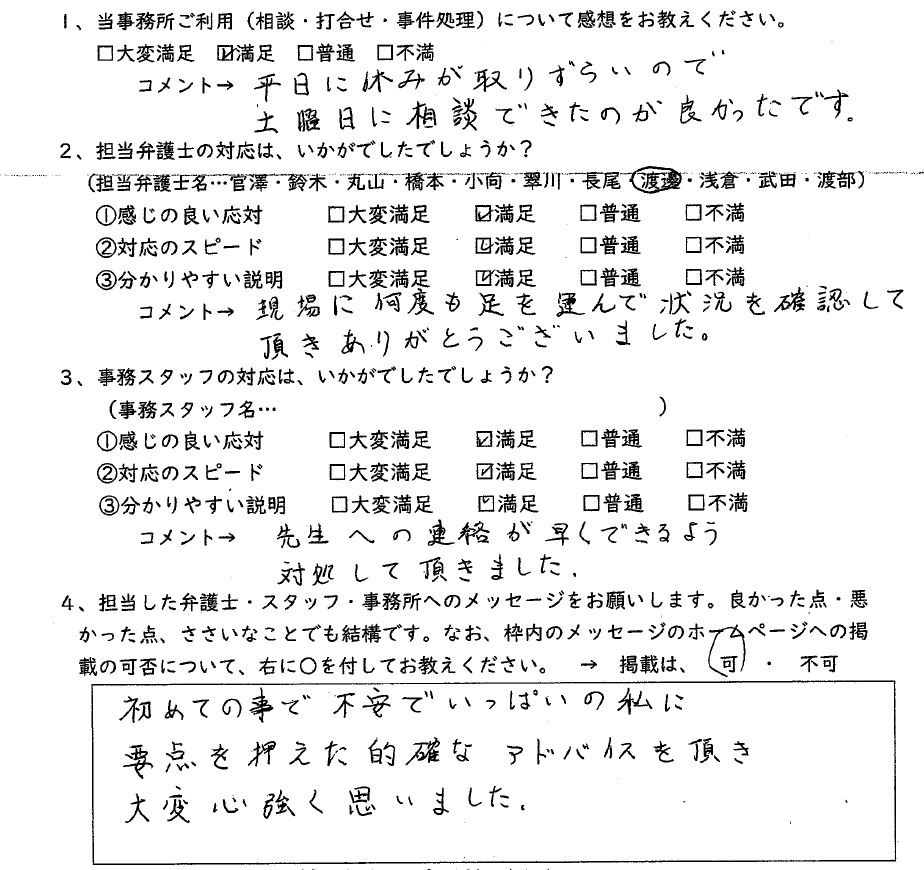 1、当事務所ご利用（相談・打合せ・事件処理）について感想をお教えください。
□大変満足 ☑満足 □普通 □不満
コメント→ 平日に休みが取りずらいので
土曜日に相談できたのが良かったです。
2、担当弁護士の対応は、いかがでしたでしょうか？
（担当弁護士名…官澤・鈴木・丸山・橋本・小向・翠川・長尾・渡邊・浅倉・武田・渡部）
①感じの良い応対 □大変満足 ☑満足 □普通 □不満
②対応のスピード □大変満足 ☑満足 □普通 □不満
③分かりやすい説明 □大変満足 ☑満足 □普通 □不満
コメント→ 現場に何度も足を運んで状況を確認して
頂きありがとうございました。
3、事務スタッフの対応は、いかがでしたでしょうか？
（事務スタッフ名… ）
①感じの良い応対 □大変満足 ☑満足 □普通 □不満
②対応のスピード □大変満足 ☑満足 □普通 □不満
③分かりやすい説明 □大変満足 ☑満足 □普通 □不満
コメント→ 先生への連絡が早くできるよう
対処して頂きました.
4、担当した弁護士・スタッフ・事務所へのメッセージをお願いします。良かった点・悪
かった点、ささいなことでも結構です。なお、枠内のメッセージのホームページへの掲
載の可否について、右に○を付してお教えください。 → 掲載は、 可 ・ 不可
初めての事で不安でいっぱいの私に
要点を押えた的確なアドバイスを頂き
大変心強く思いました.